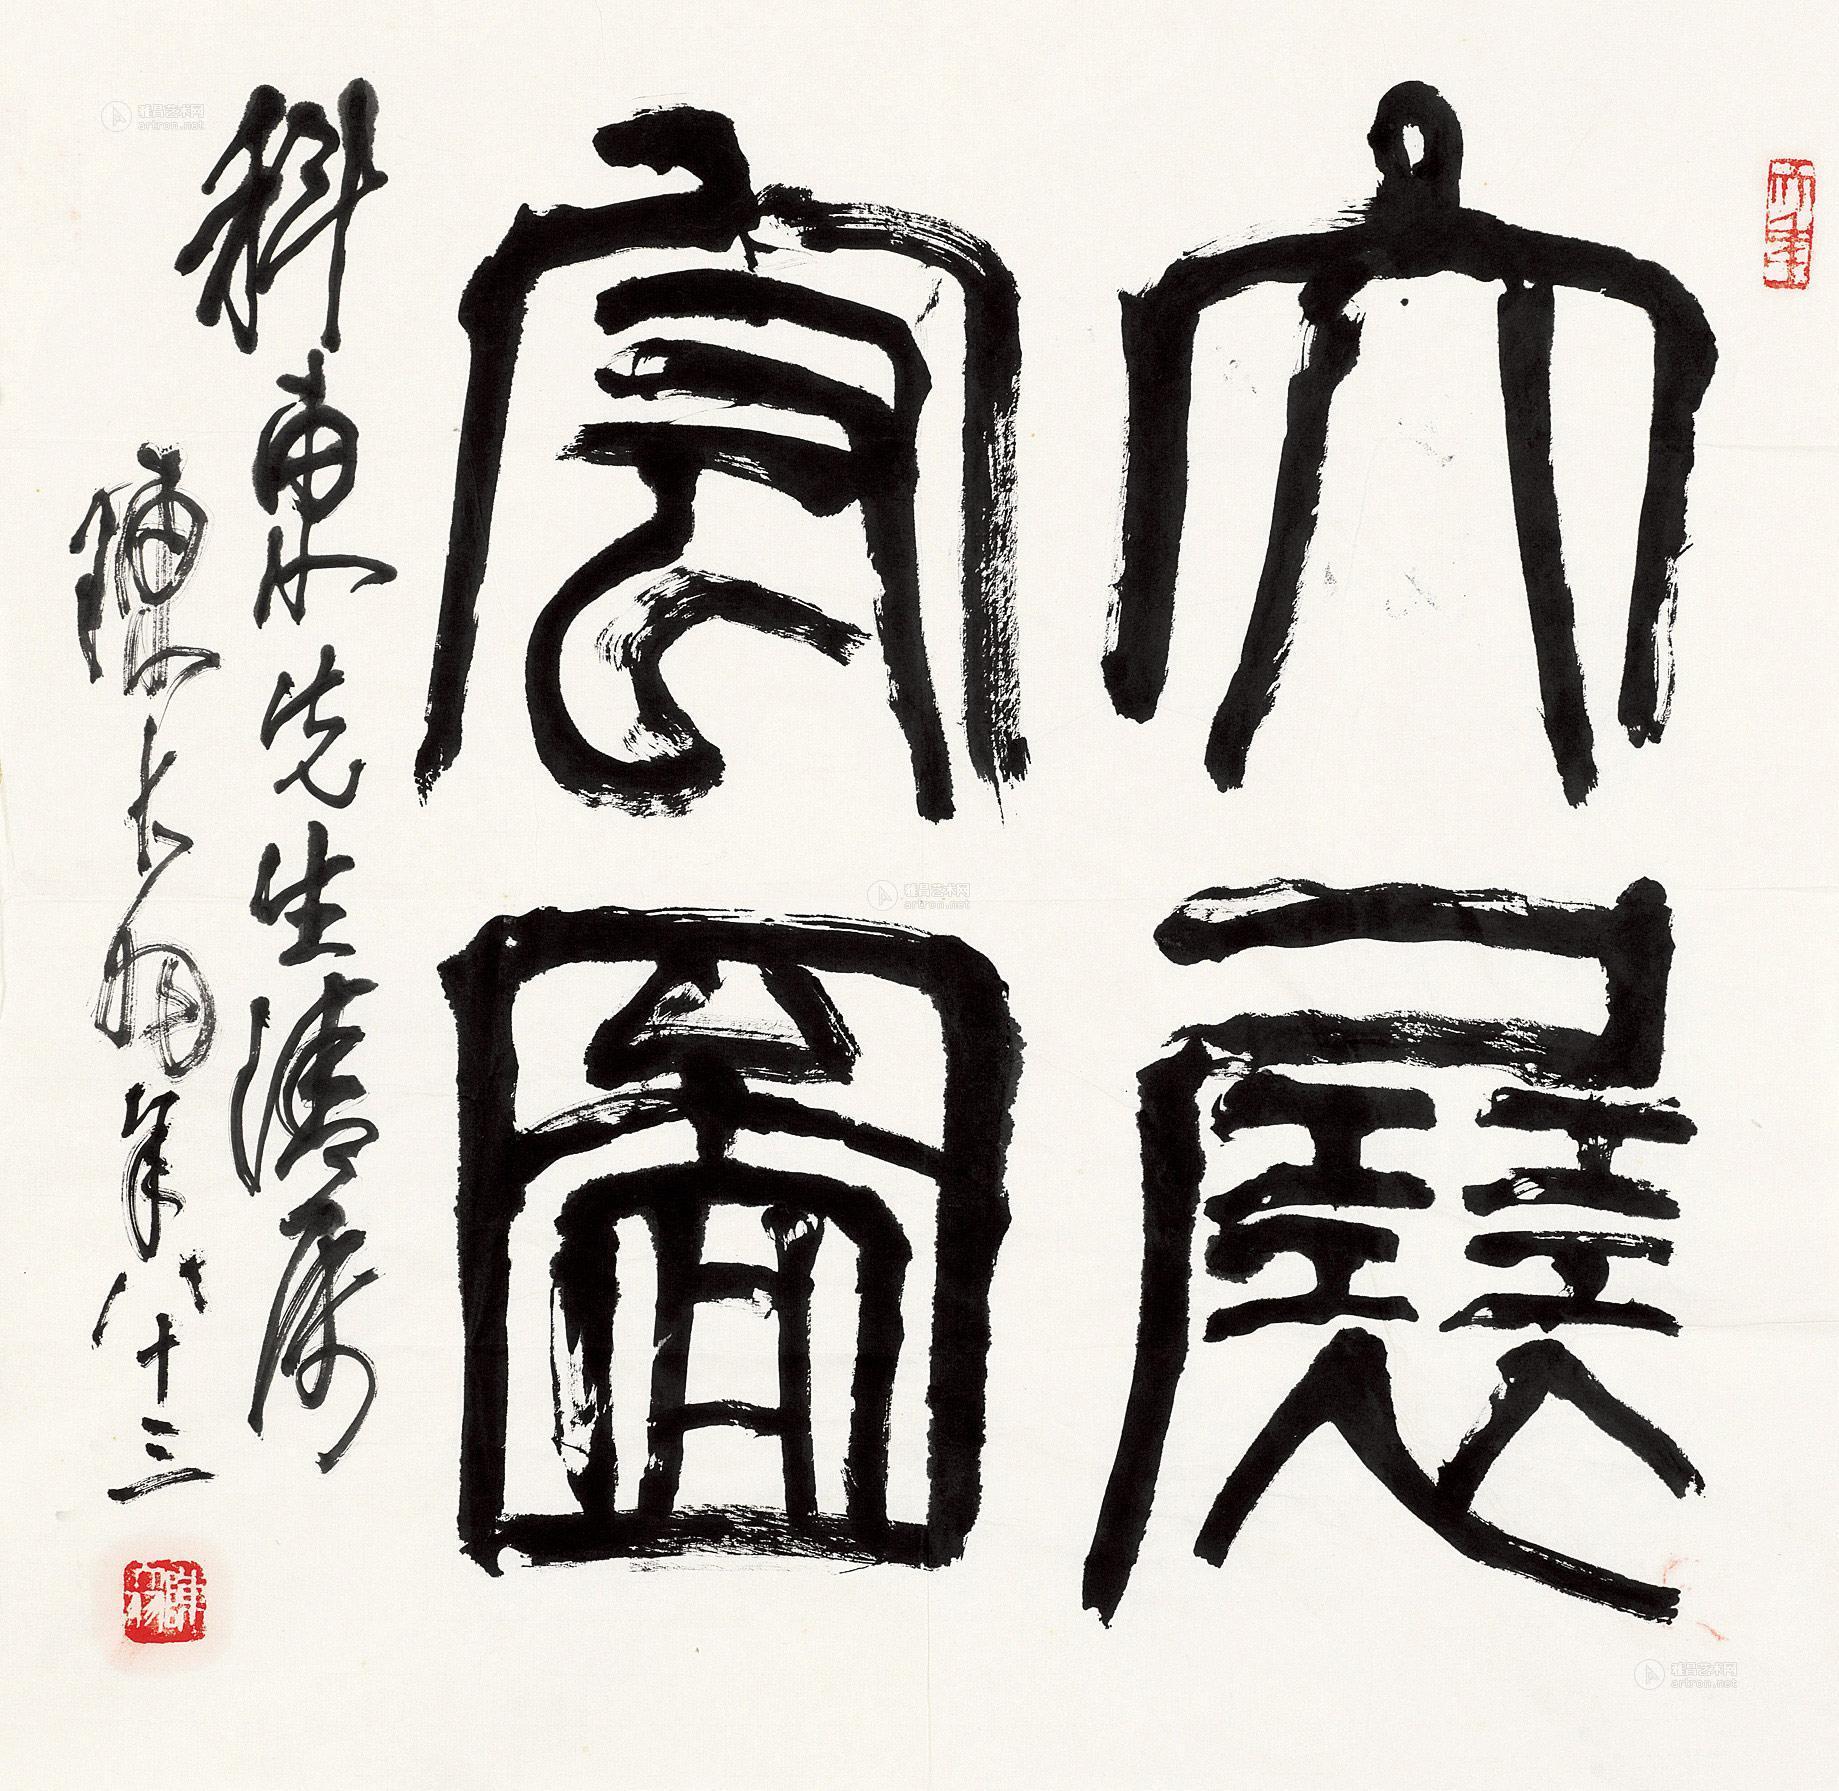 大展
宏图
科東先生清屬
陳大羽年八十三
大年
陳大羽
雅昌艺术网
artron.net
雅昌艺术网
artron.net
雅昌艺术网
artron.net